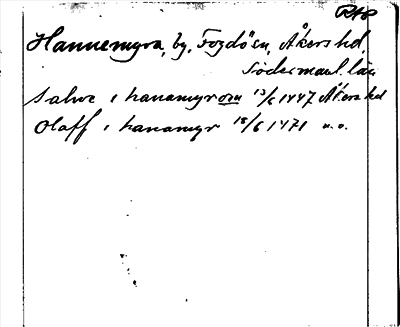 RAp
Hannemyra, by, Fogdöen, Åkers hd,
Södermanl. län
Salwe i hanamyrom 13/6 1447 Åkers hd
Olaff i hanamyr 18/6 1471 u.o.